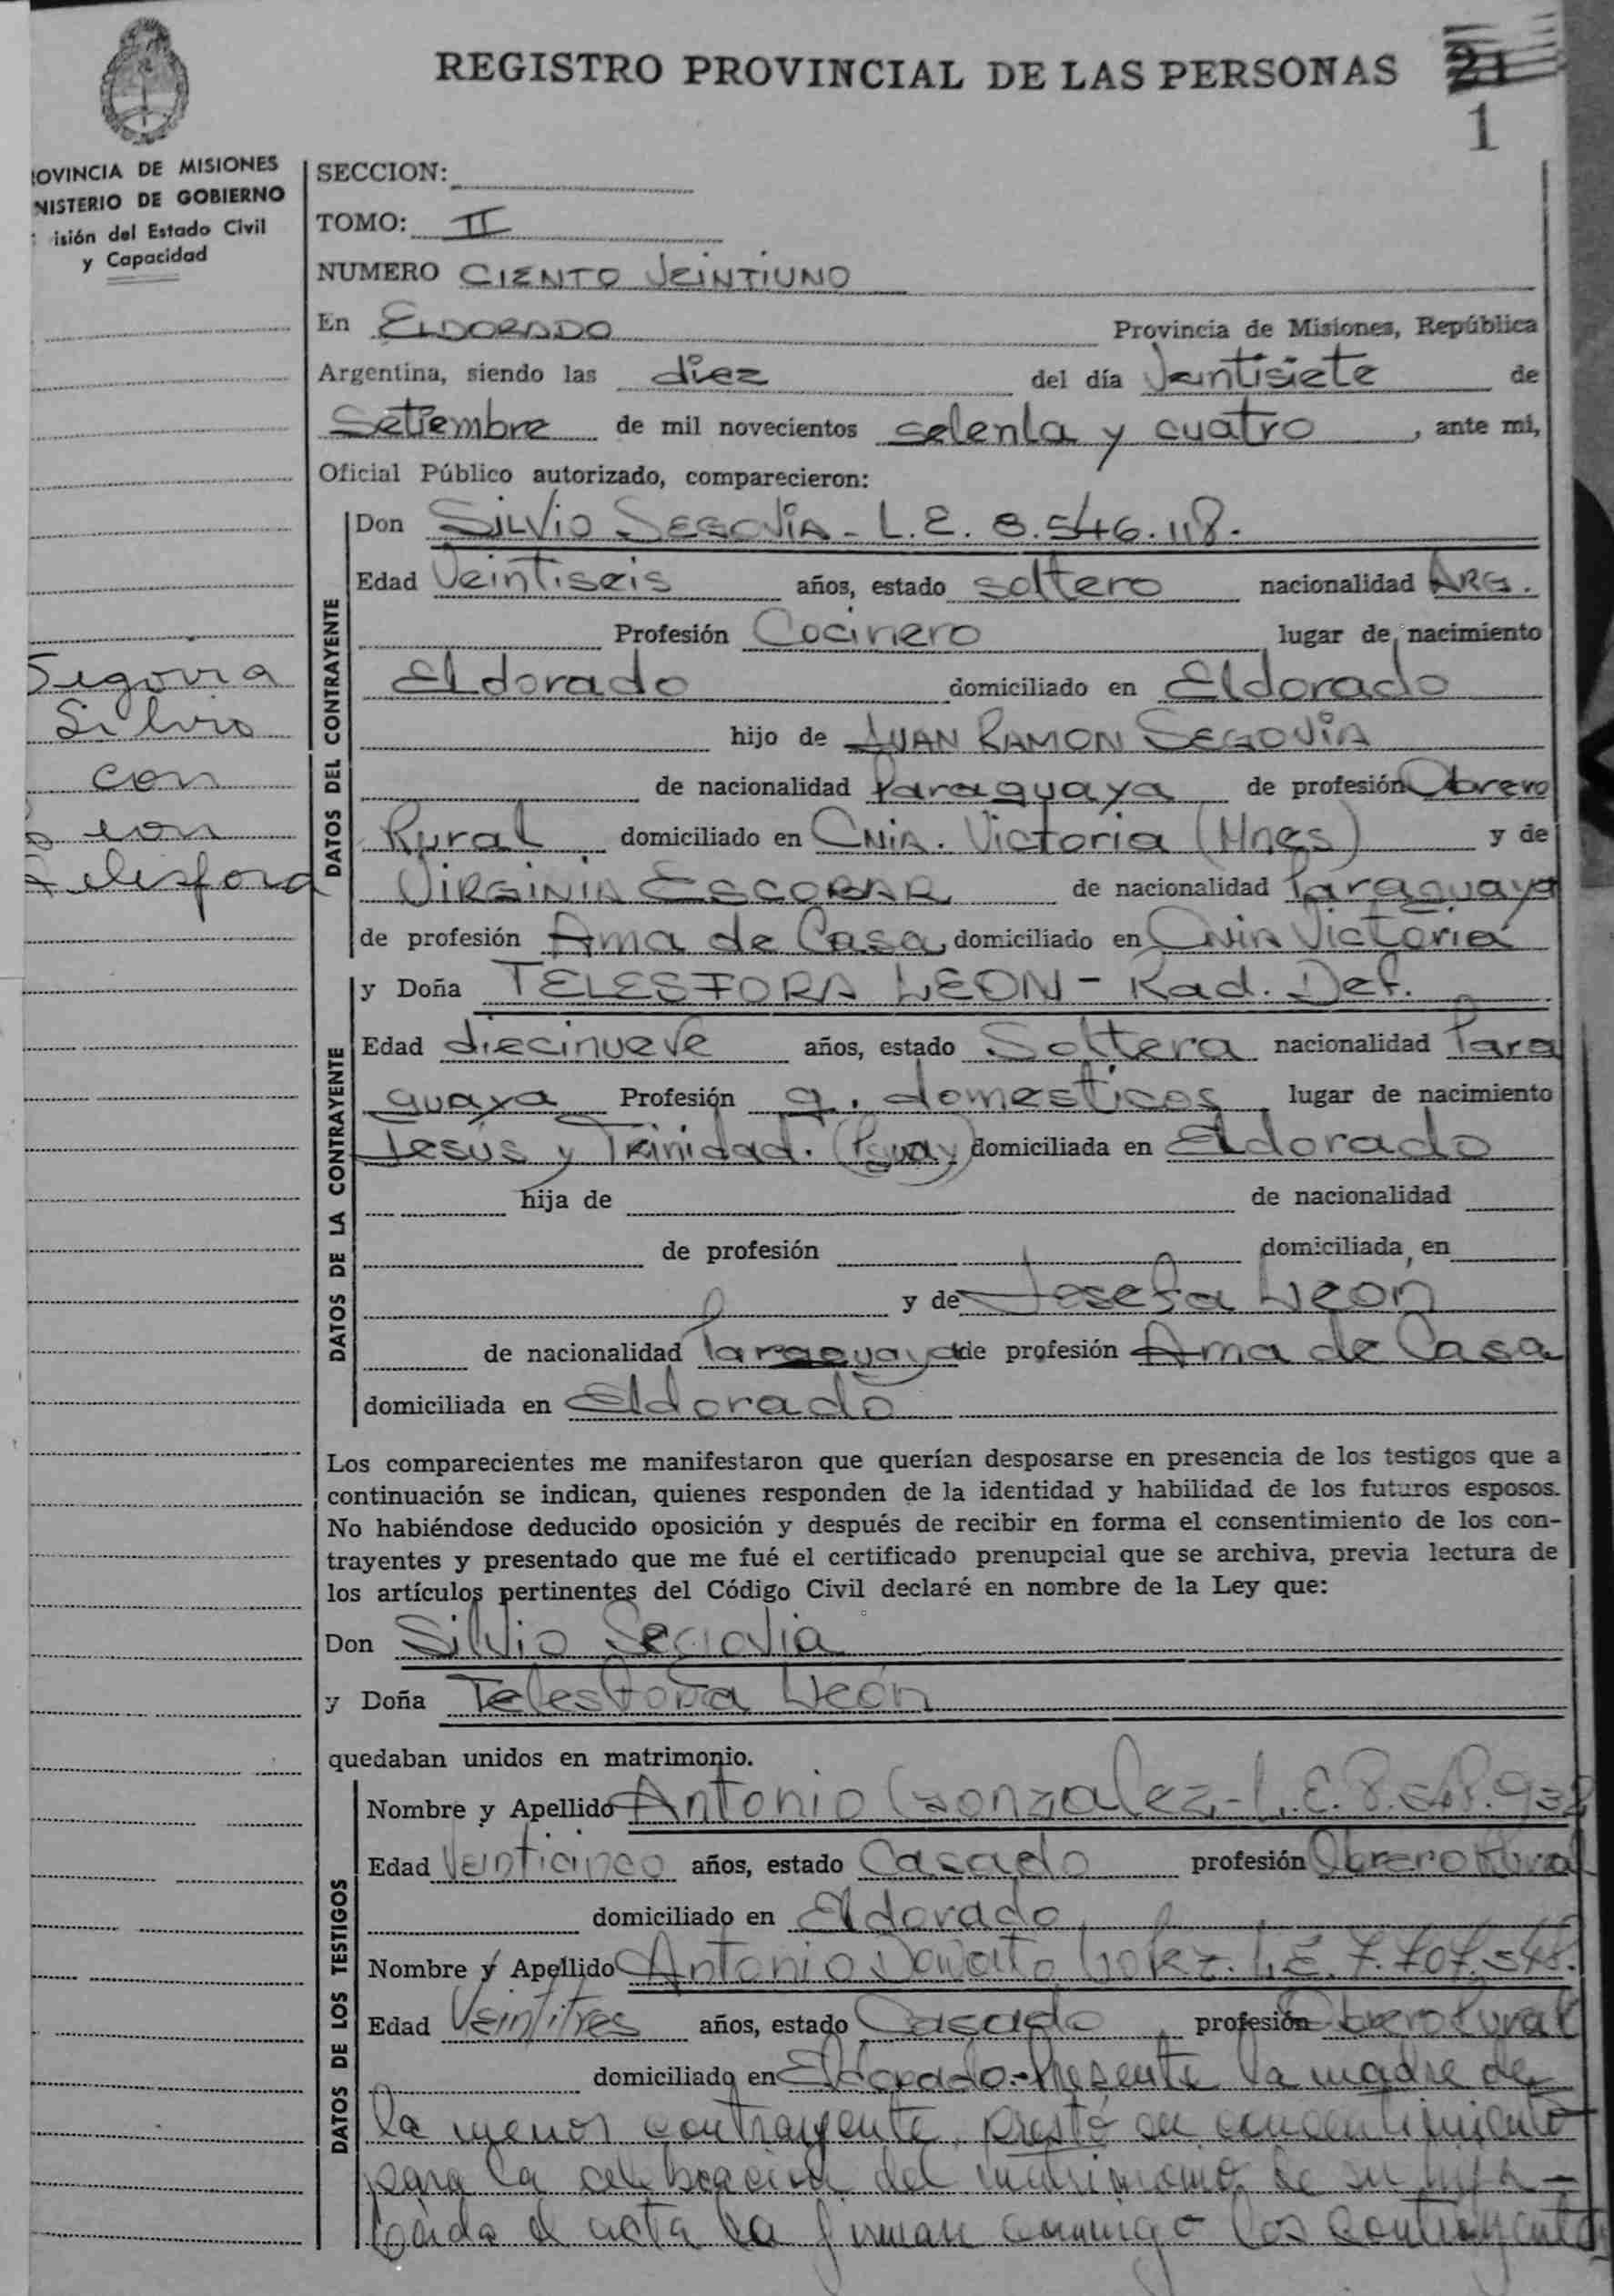 REGISTRO PROVINCIAL DE LAS PERSONAS 21
1
ROVINCIA DE MISIONES
NISTERIO DE GOBIERNO
isión del Estado Civil
y Capacidad
SECCION:
TOMO: II
NUMERO CIENTO VEINTIUNO
En ELDORADO Provincia de Misiones, República
Argentina, siendo las diez del día Veintisiete de
Setiembre de mil novecientos setenta y cuatro, ante mi,
Oficial Público autorizado, comparecieron:
DATOS DEL CONTRAYENTE
Don SILVIO SEGOVIA - L.E. 8.546.118.
Edad Veintiseis años, estado soltero nacionalidad ARG.
Profesión Cocinero lugar de nacimiento
Eldorado domiciliado en Eldorado
hijo de JUAN RAMON SEGOVIA
de nacionalidad Paraguaya de profesión Obrero
Rural domiciliado en Cnia. Victoria (Mnes) y de
VIRGINIA ESCOBAR de nacionalidad Paraguaya
de profesión Ama de Casa, domiciliado en Cnia Victoria
Segovia
Silvio
con
Leon
Telesfora
DATOS DE LA CONTRAYENTE
y Doña TELESFORA LEON - Rad. Def.
Edad diecinueve años, estado Soltera nacionalidad Para
guaya Profesión q. domesticos lugar de nacimiento
Jesús y Trinidad. (Pguay) domiciliada en Eldorado
hija de de nacionalidad
de profesión domiciliada en
y de Josefa Leon
de nacionalidad Paraguaya de profesión Ama de Casa
domiciliada en Eldorado
Los comparecientes me manifestaron que querían desposarse en presencia de los testigos que a
continuación se indican, quienes responden de la identidad y habilidad de los futuros esposos.
No habiéndose deducido oposición y después de recibir en forma el consentimiento de los con-
trayentes y presentado que me fué el certificado prenupcial que se archiva, previa lectura de
los artículos pertinentes del Código Civil declaré en nombre de la Ley que:
Don Silvio Segovia
y Doña Telesfora León
quedaban unidos en matrimonio.
DATOS DE LOS TESTIGOS
Nombre y Apellido Antonio Gonzalez - L.E.
Edad Veinticinco años, estado Casado profesión Obrero Rural
domiciliado en Eldorado
Nombre y Apellido Antonio Lopez. L.E. 7.707.548.
Edad Veintitres años, estado Casado profesión Obrero Rural
domiciliado en Eldorado.- Presente la madre de
la menor contrayente, prestó su consentimiento
para la celebración del matrimonio de su hija -
Leida el acta la firman conmigo los contrayentes